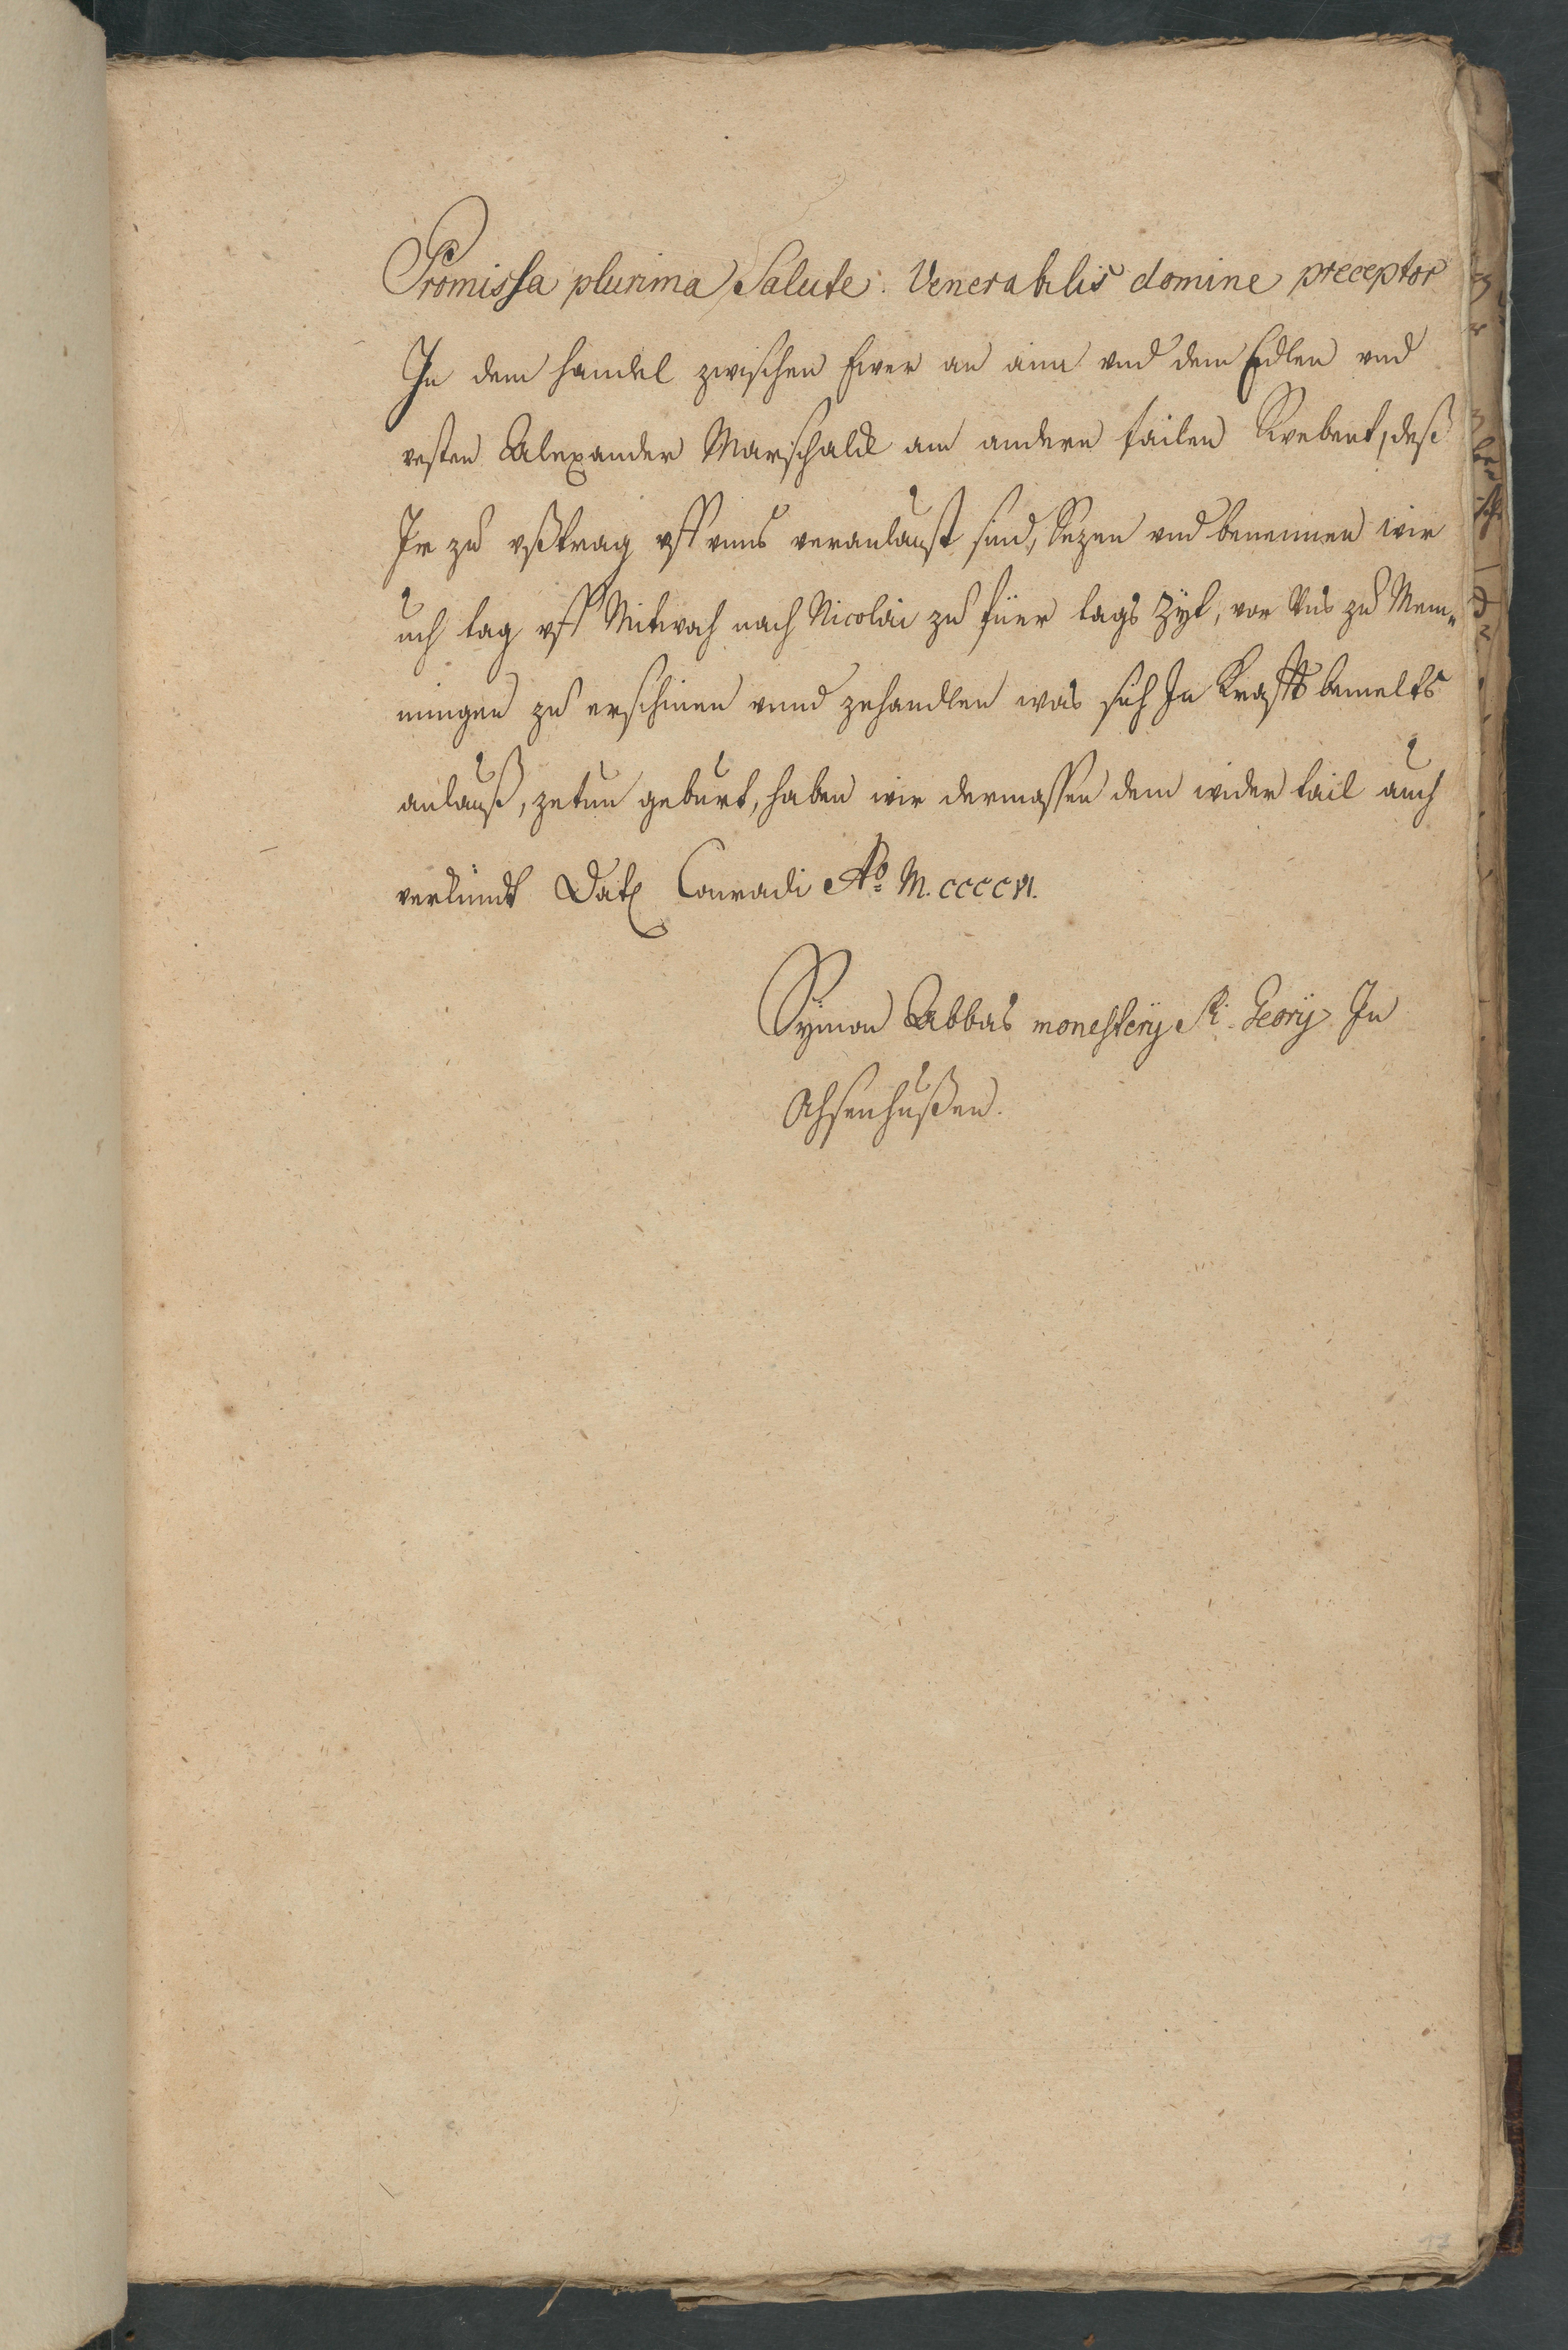 Promissa plurima Salute. Venerabilis domine preceptor
In dem handel zwischen Ewer an aim vnd dem Edlen vnd
vesten Alexander Marschalk am andern tailen Swebent, deß
Ir zu vßtrag vff vnns veranlaust sind, Sezen vnd benennen wir
uch tag vff Mitwoch nach Nicolai zu füer tags Zyt, vor Vns zu Mem„
mingen zu erschinen vnnd zehandlen was sich In Krafft bemelts
anlauß, zetun geburt, haben wir dermassen dem wider tail auch
verkündt Dat Conradi Ao M. CCCCVI.
Symon Abbas monestery Sti. Georÿ In
Ochsenhußen.
17